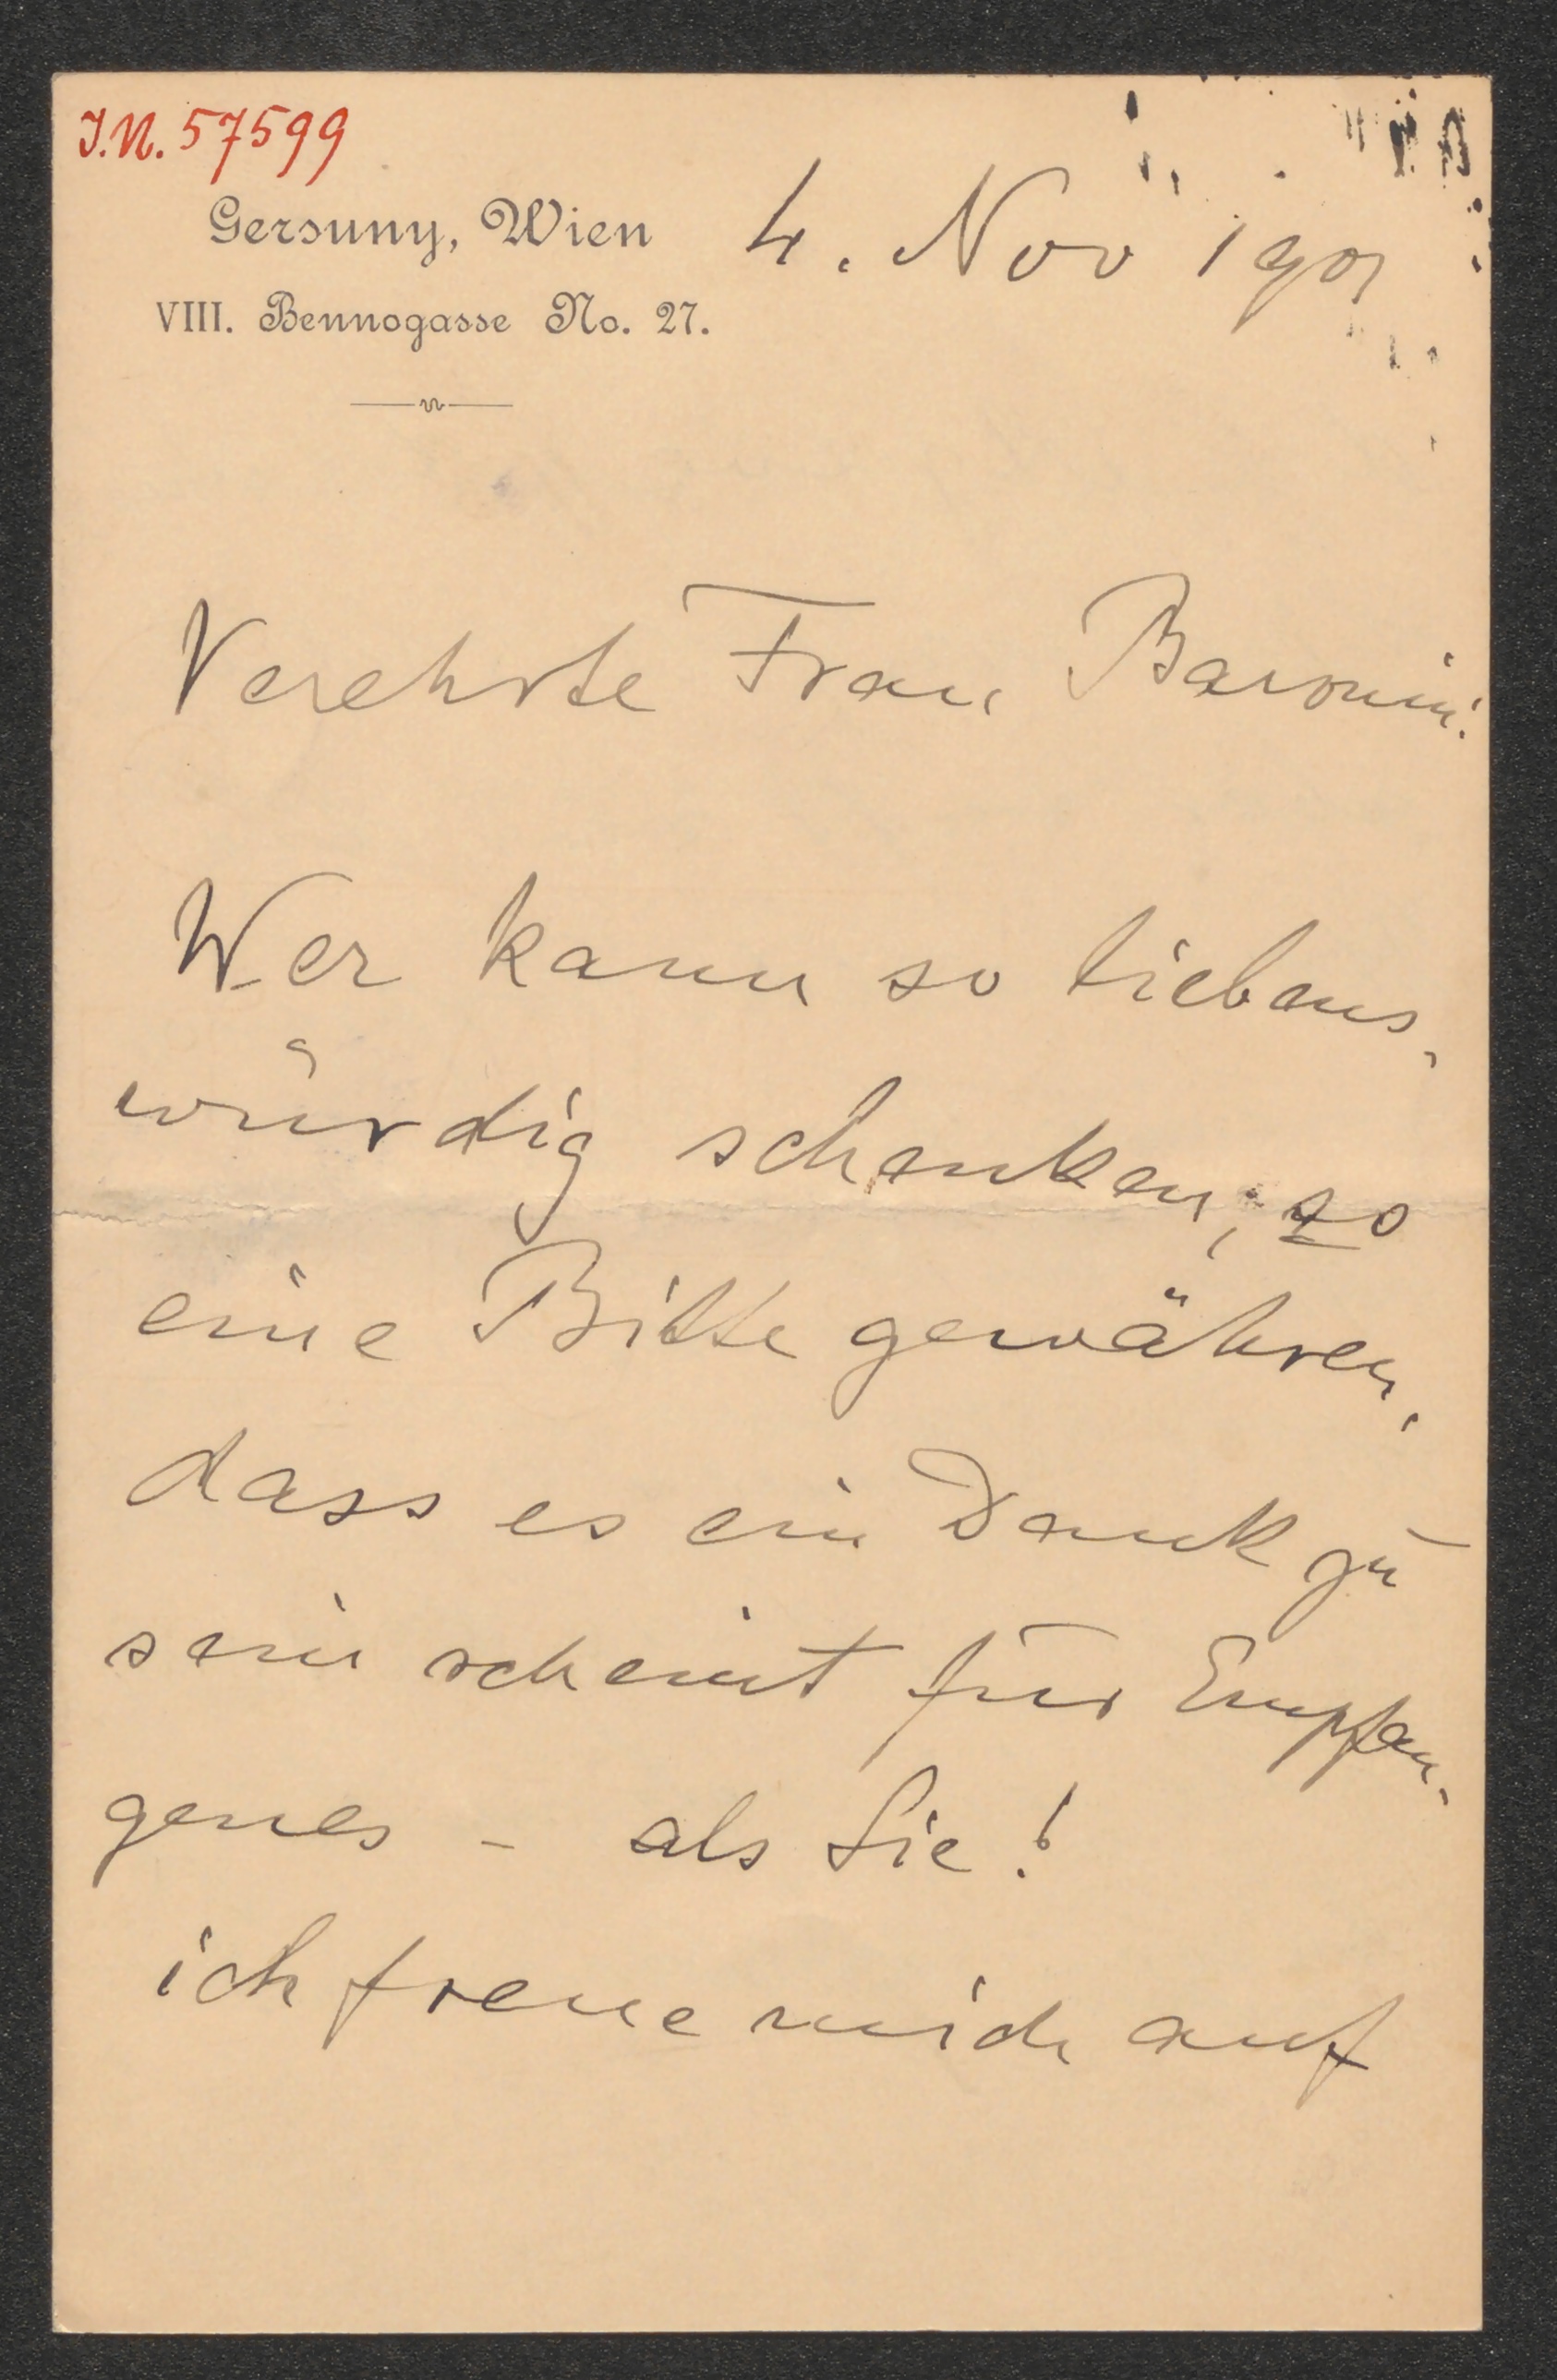 J.N. 57599
Gersuny, Wien
VIII. Bennogasse No. 27.
4. Nov 1901
Verehrte Frau Baronin!
Wer kann so liebens-
würdig schenken, so
eine Bitte gewähren,
dass es ein Dank zu
sein scheint für Empfan-
genes - als Sie!
ich freue mich auf